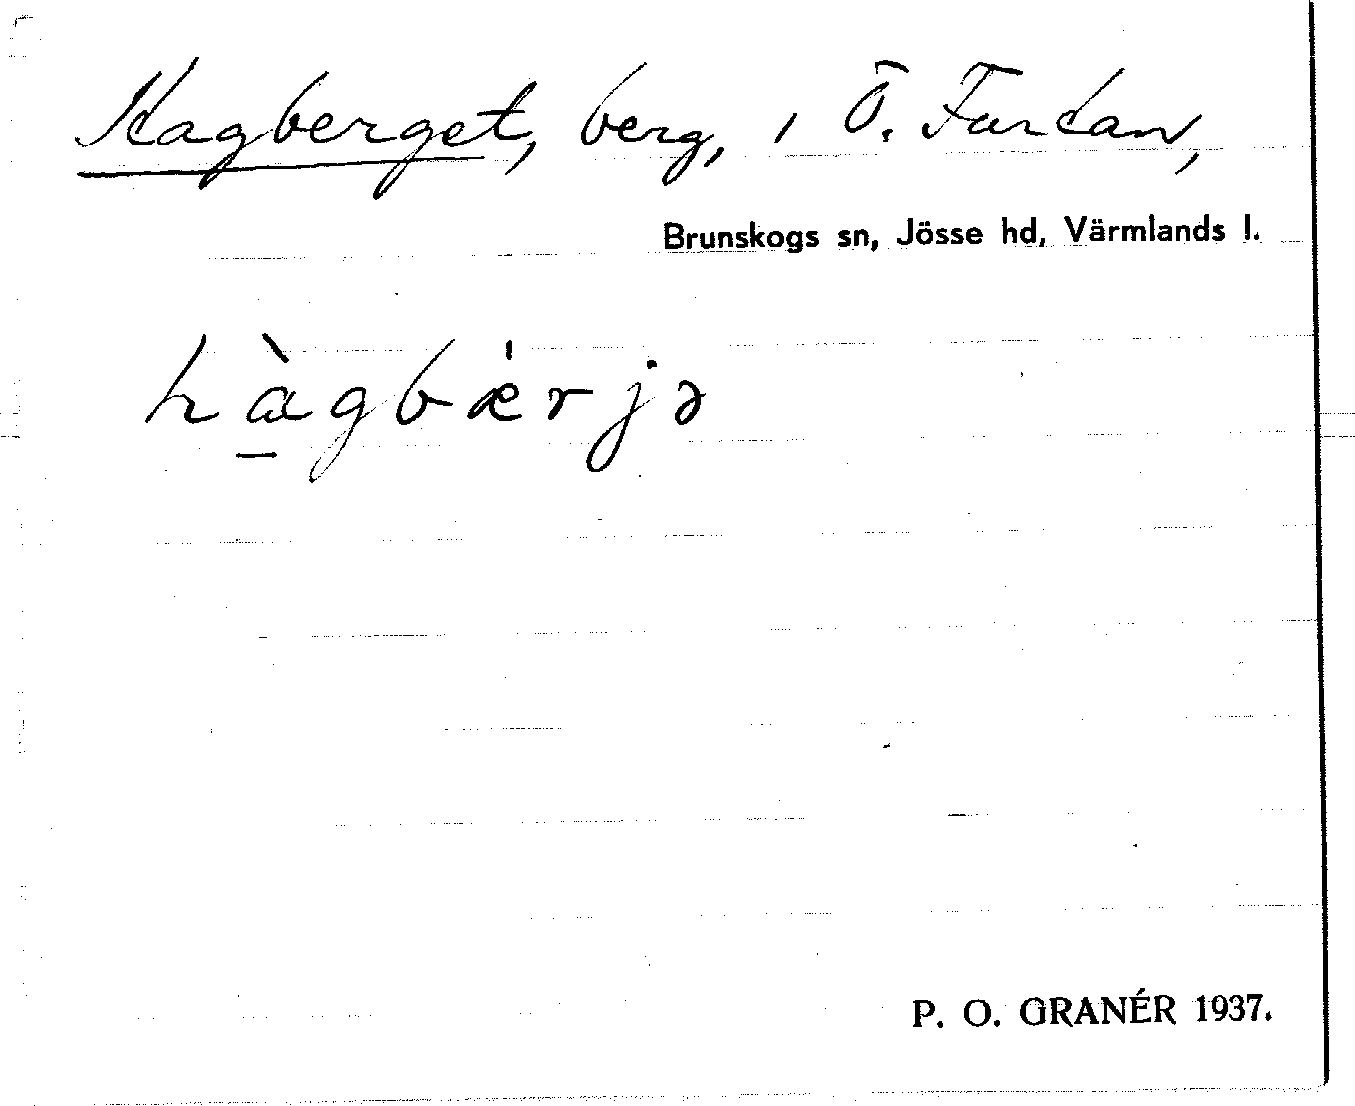 Hagberget, berg, i Ö. Furtan,
Brunskogs sn, Jösse hd, Värmlands l.
hàgbǽrjə
P. O. GRANÉR 1937.